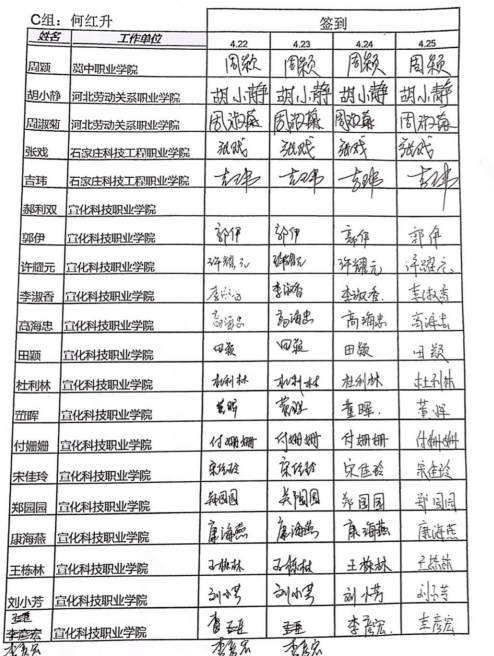 C组：何红升 签到
姓名 工作单位 4.22 4.23 4.24 4.25
周颖 冀中职业学院 周颖 周颖 周颖 周颖
胡小静 河北劳动关系职业学院 胡小静 胡小静 胡小静 胡小静
周淑菊 河北劳动关系职业学院 周淑菊 周淑菊 周淑菊 周淑菊
张戏 石家庄科技工程职业学院 张戏 张戏 张戏 张戏
吉玮 石家庄科技工程职业学院 吉玮 吉玮 吉玮 吉玮
郝利双 宣化科技职业学院
郭伊 宣化科技职业学院 郭伊 郭伊 郭伊 郭伊
许耀元 宣化科技职业学院 许耀元 许耀元 许耀元 许耀元
李淑香 宣化科技职业学院 李淑香 李淑香 李淑香 李淑香
高海忠 宣化科技职业学院 高海忠 高海忠 高海忠 高海忠
田颖 宣化科技职业学院 田颖 田颖 田颖 田颖
杜利林 宣化科技职业学院 杜利林 杜利林 杜利林 杜利林
黄晖 宣化科技职业学院 黄晖 黄晖 黄晖 黄晖
付姗姗 宣化科技职业学院 付姗姗 付姗姗 付姗姗 付姗姗
宋佳玲 宣化科技职业学院 宋佳玲 宋佳玲 宋佳玲 宋佳玲
郑园园 宣化科技职业学院 郑园园 郑园园 郑园园 郑园园
康海燕 宣化科技职业学院 康海燕 康海燕 康海燕 康海燕
王栋林 宣化科技职业学院 王栋林 王栋林 王栋林 王栋林
刘小芳 宣化科技职业学院 刘小芳 刘小芳 刘小芳 刘小芳
李彦宏 宣化科技职业学院 李彦宏 李彦宏
李彦宏 李彦宏 李彦宏